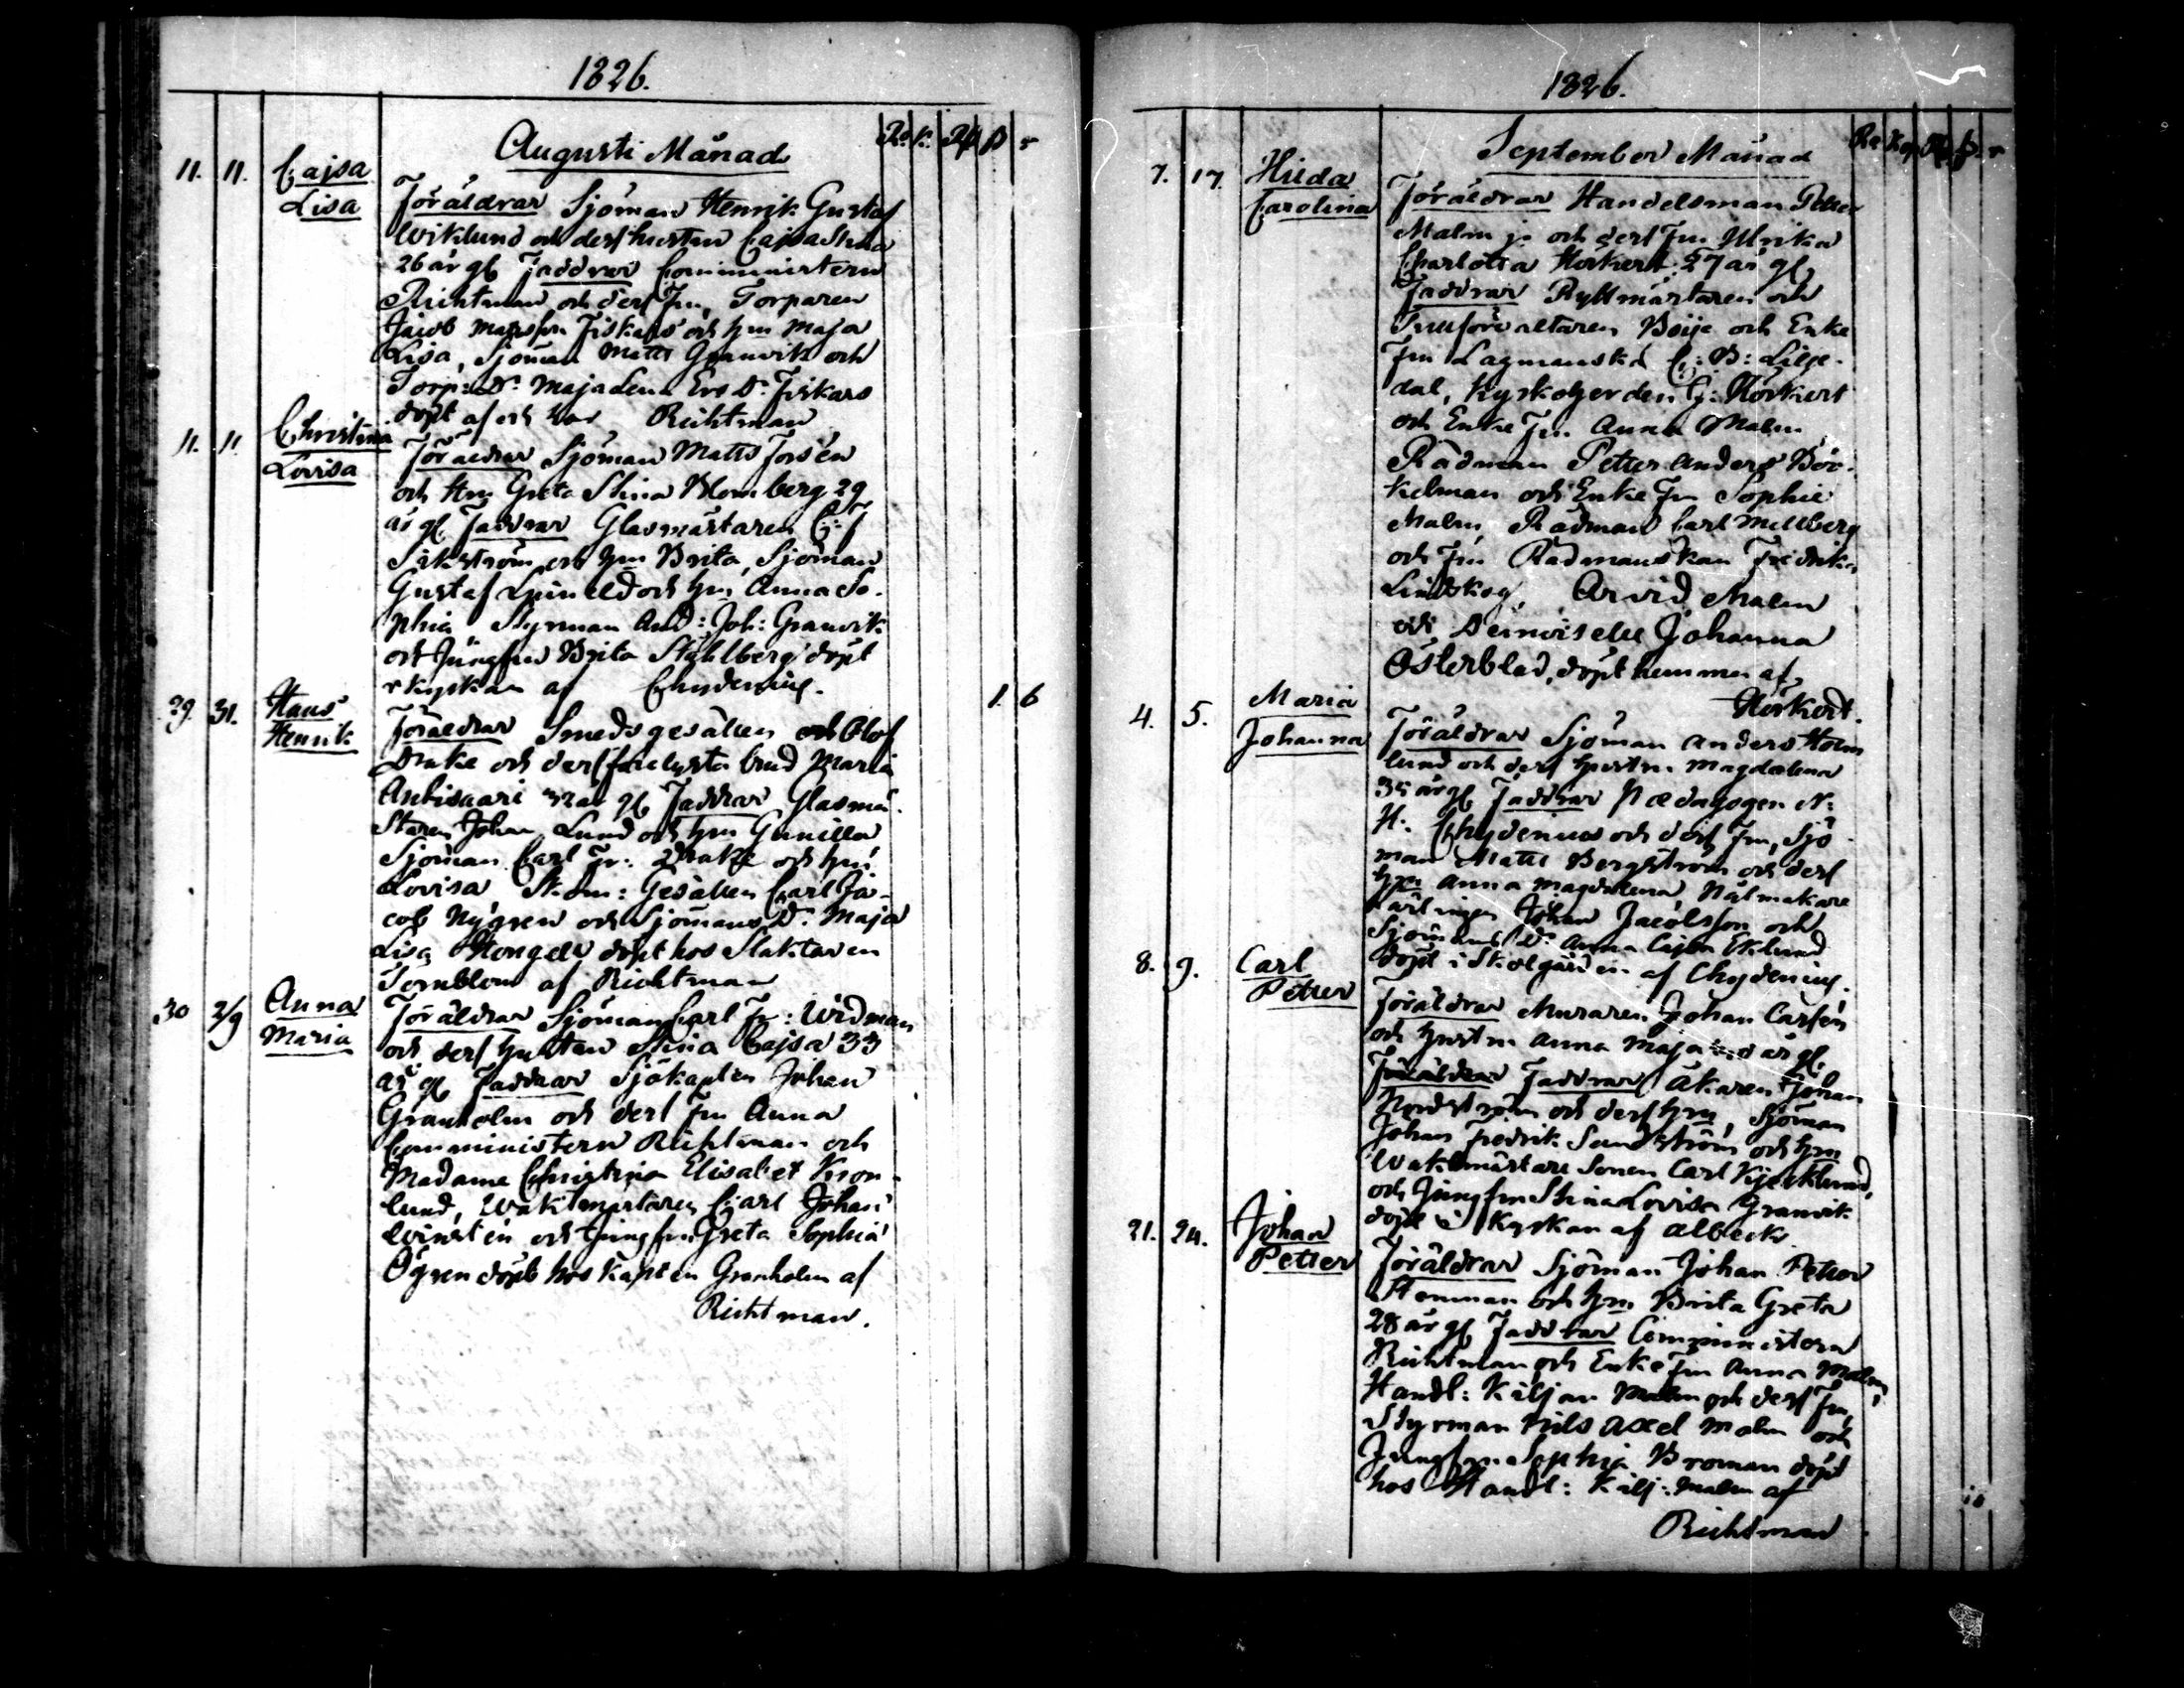 1826.
Augusti Månad
R. K. Rp B r
11. 11. Cajsa Lisa
Föräldrar Sjöman Henrik Gustaf
Wiklund och dess hustru Cajsa Stina
26 år gl. Faddrar Comministern
Richtman och dess Fru, Torparen
Jacob Matsson Fiskars och hru Maja
Lisa, Sjöman Matts Granvik och
Torp: Dr Maja Lena Ers Dr Fiskars
döpt af och hos Richtman
11. 11. Christina Lovisa
Föräldrar Sjöman Matts Forsén
och Hru Greta Stina Blomberg 29
år gl. Faddrar Glasmästaren C: J
Sikström och hru Brita, Sjöman
Gustaf Ljuneld och hru Anna So-
phia Styrman And: Joh: Granvik
och Jungfru Brita Stahlberg döpt
i kyrkan af Chydenius.
29. 31. Hans Henrik 1. 6
Föräldrar Smedsgesällen Olof
Drake och dess förelysta brud Maria
Anbisaari 32 år gl. Faddrar Glasmä-
staren Johan Lund och hru Gunilla
Sjöman Carl Fr: Drake och hru
Lovisa Sk.m: Gesällen Carl Ja-
cob Nygren och Sjömans Dr. Maja
Lisa Stongell döpt hos Slaktaren
Törnblom af Richtman
30 2/9 Anna Maria
Föräldrar Sjöman Carl Fr: Widman
och dess hustru Stina Cajsa 33
år gl. Faddrar Sjökapten Johan
Granholm och dess Fru Anna
Comministern Richtman och
Madame Christina Elisabet Kron-
lund, Waktmästaren Carl Johan
Winstén och Jungfru Greta Sophia
Ögren döpt hos Kapten Granholm af
Richtman.
1826.
September Månad
Re Kop Rp B r
7. 17. Hilda Carolina
Föräldrar Handelsman Petter
Malm jr och dess Fru Ulrika
Charlotta Horkert 27 år gl.
Faddrar Ryttmästaren och
Tullförvaltaren Boije och Enke
Fru Lagmanskå C: B: Lilje-
dal, Kyrkoherden G: Hörkert
och Enke Fru Anna Malm
Rådman Petter Anders Böc-
kelman och Enke Fru Sophie
Malm, Rådman Carl Mellberg
och Fru Rådmanskan Fredrika
Lindskog, Arvid Malm
och Demoiselle Johanna
Österblad, döpt hemma af
Hörkert.
4. 5. Maria Johanna
Föräldrar Sjöman Anders Holm
lund och dess hustru Magdalena
35 år gl. Faddrar Pædagogen N:
H: Chydenius och dess Fru, Sjö
man Matts Bergström och dess
hru Anna Magdalena, Nålmakare
Lärlingen Johan Jacobsson och
Sjömans Dr. Anna Cajsa Eklund
döpt i Skolgården af Chydenius.
8. 9. Carl Petter
Föräldrar Muraren Johan Carlsén
och hustru Anna Maja år gl.
Föräldrar Faddrar Åkaren Johan
Nordström och dess hru, Sjöman
Johan Fredrik Sandström och hru
Waktmästare Sonen Carl Kjecklund,
och Jungfru Stina Lovisa Granvik
döpt i Kyrkan af Albeck.
21. 24. Johan Petter
Föräldrar Sjöman Johan Petter
Stenman och hru Brita Greta
28 år gl. Faddrar Comministern
Richtman och Enke Fru Anna Malm,
Handl: Kiljan Malm och dess Fru,
Styrman Nils Axel Malm och
Jungfru Sophia Broman döpt
hos Handl: Kilj: Malm af
Richtman